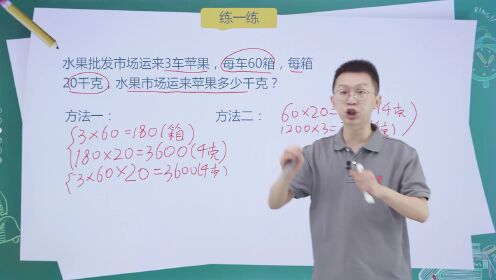 练一练
水果批发市场运来3车苹果，每车60箱，每箱
20千克，水果市场运来苹果多少千克？
方法一：
3×60=180(箱)
180×20=3600(千克)
3×60×20=3600(千克)
方法二：
60×20=
1200×3=